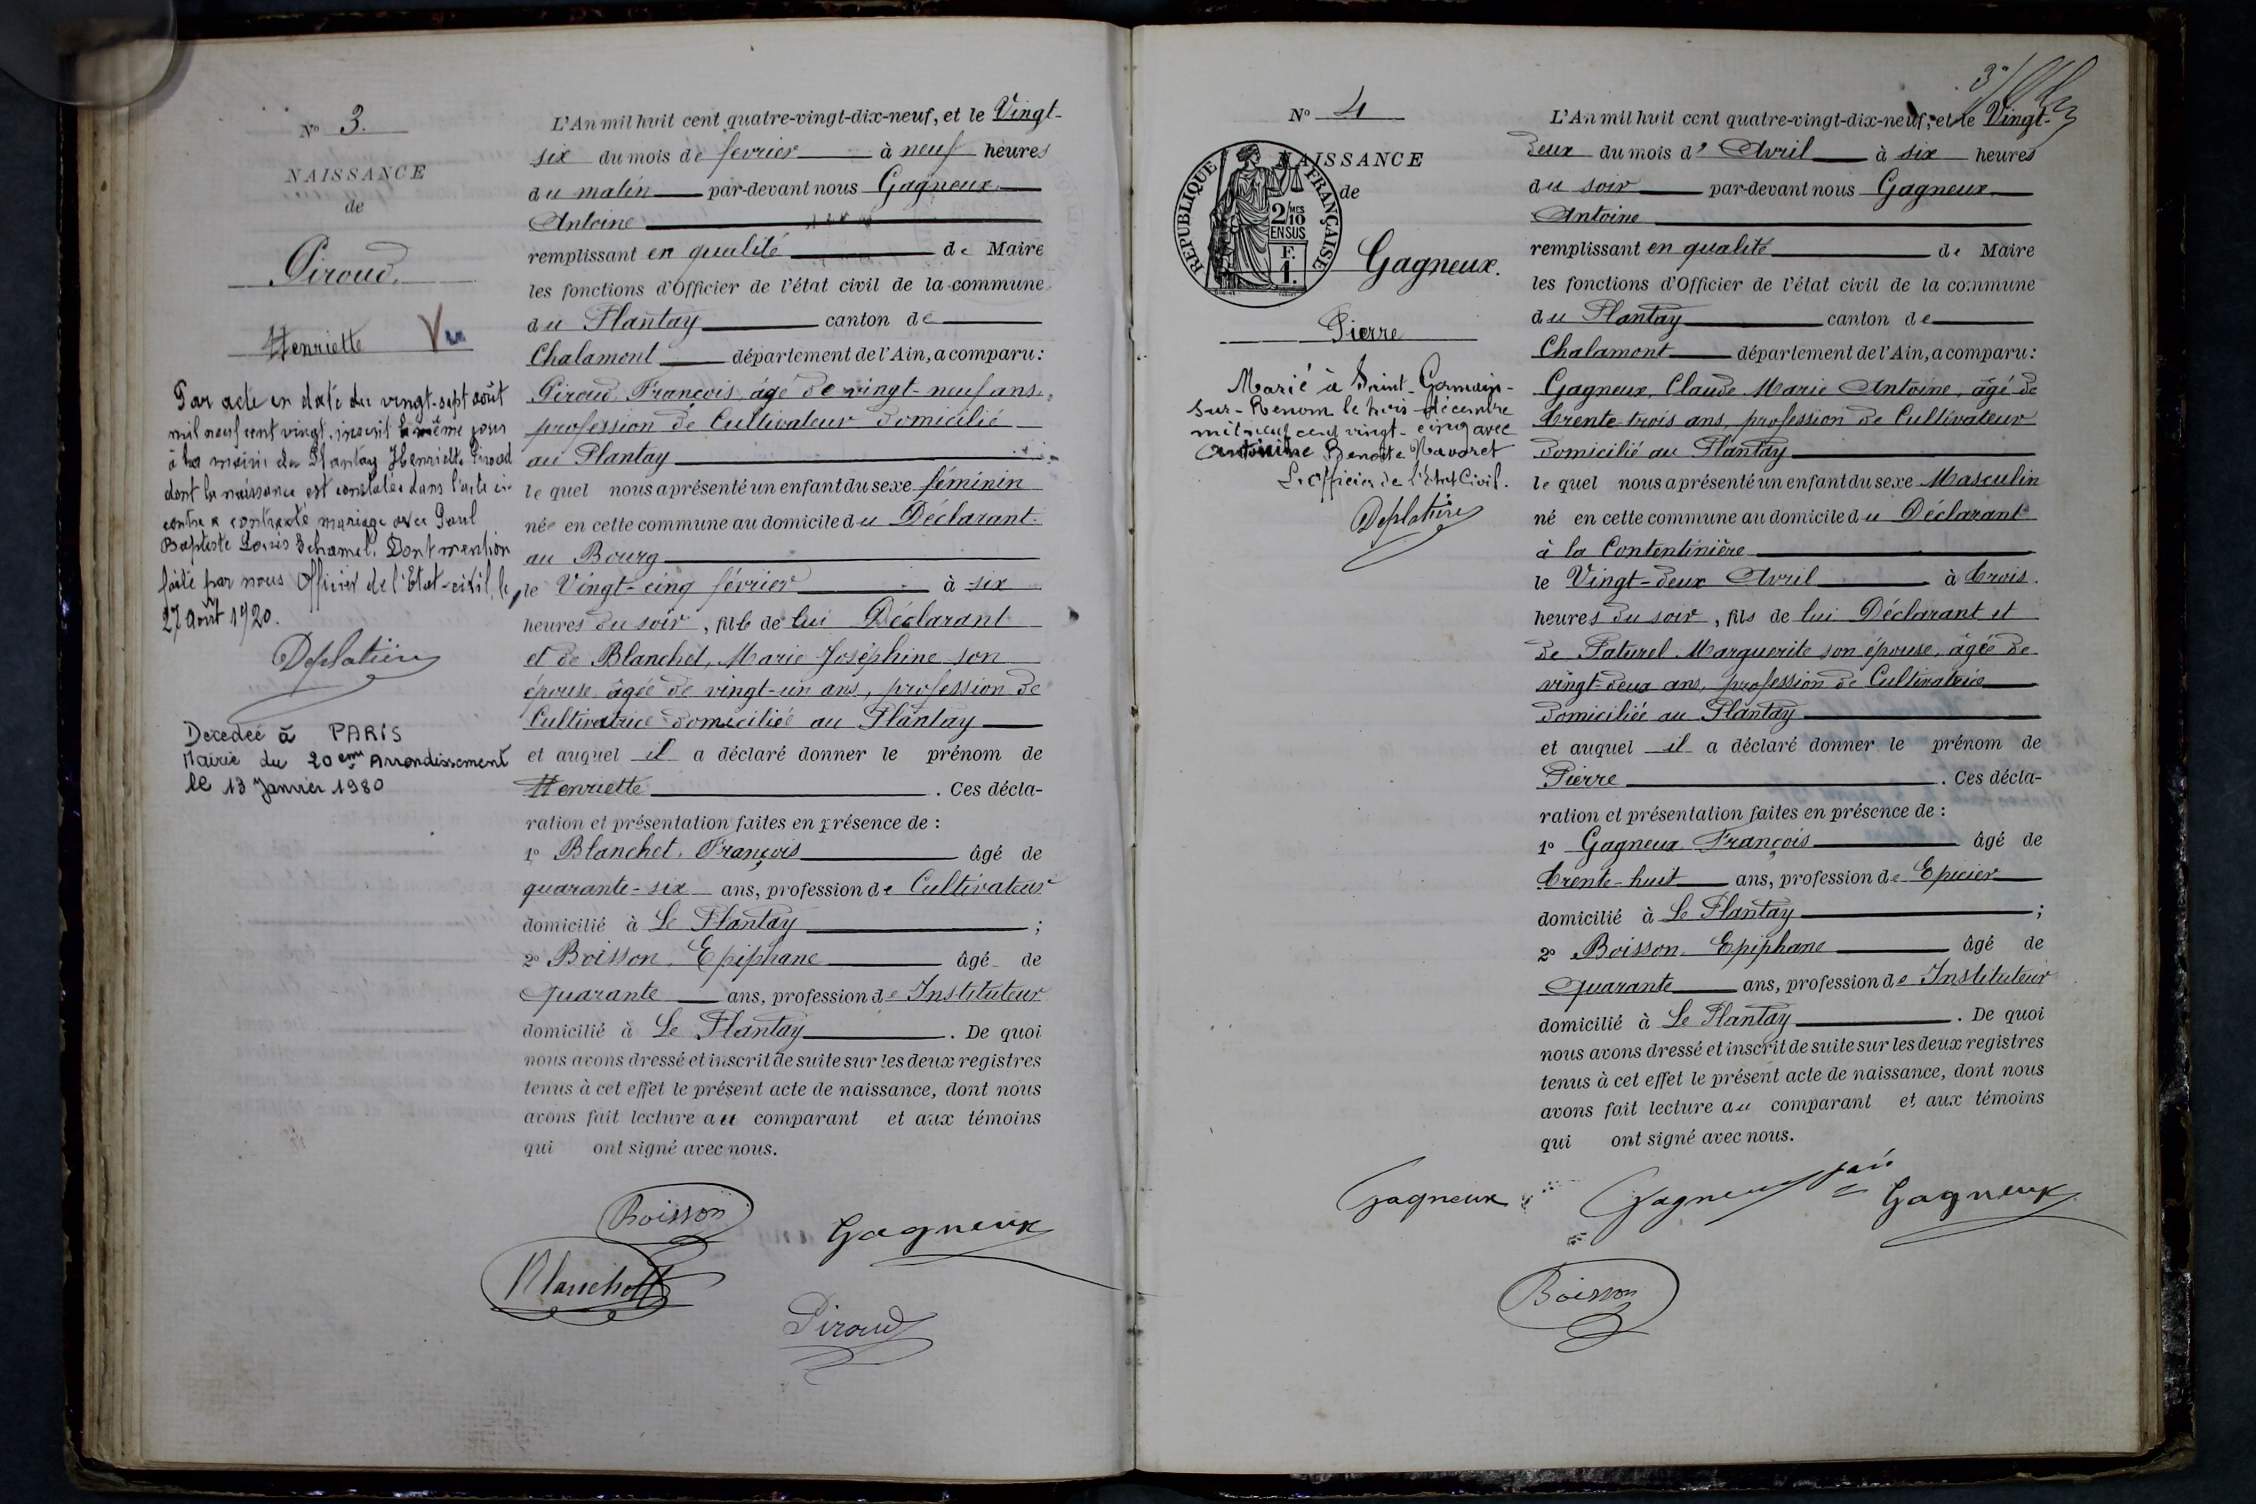 No 3.
NAISSANCE
de
Piroud.
Henriette Vu
Par acte en date du vingt-sept août
mil neuf cent vingt, inscrit le même jour
à la mairie du Plantay Henriette Piroud
dont la naissance est constatée dans l'acte ci-
contre a contracté mariage avec Paul
Baptiste Louis Dont mention
faite par nous Officier de l'Etat-civil, le
27 août 1920.
Deplatière
Décédée à PARIS
Mairie du 20ème Arrondissement
le 13 Janvier 1980
L'An mil huit cent quatre-vingt-dix-neuf, et le Vingt-
six du mois de février à neuf heures
du matin par-devant nous Gagneux
Antoine
remplissant en qualité de Maire
les fonctions d'Officier de l'état civil de la commune
du Plantay canton de
Chalamont département de l'Ain, a comparu:
Piroud François âgé de vingt-neuf ans,
profession de Cultivateur domicilié
au Plantay
le quel nous a présenté un enfant du sexe féminin
née en cette commune au domicile du Déclarant
au Bourg
le Vingt-cinq février à six
heures du soir, fille de lui Déclarant
et de Blanchet, Marie Joséphine son
épouse âgée de vingt-un ans, profession de
Cultivatrice domiciliée au Plantay
et auquel il a déclaré donner le prénom de
Henriette. Ces décla-
ration et présentation faites en présence de :
1º Blanchet, François âgé de
quarante-six ans, profession de Cultivateur
domicilié à Le Plantay ;
2º Boisson, Epiphane âgé de
Quarante ans, profession de Instituteur
domicilié à Le Plantay. De quoi
nous avons dressé et inscrit de suite sur les deux registres
tenus à cet effet le présent acte de naissance, dont nous
avons fait lecture au comparant et aux témoins
qui ont signé avec nous.
Boisson
Gagneux
Blanchet
Piroud
No 4
NAISSANCE
de
REPUBLIQUE FRANÇAISE
2/10 MES
EN SUS
F.
1.
Gagneux.
Pierre
Marié à Saint-Germain-
sur-Renom le trois décembre
mil neuf cent vingt-cinq avec
Antoinette Benoite Navoret
L'Officier de l'Etat Civil.
Deplatière
L'An mil huit cent quatre-vingt-dix-neuf, et le Vingt-
deux du mois d' Avril à six heures
du soir par-devant nous Gagneux
Antoine
remplissant en qualité de Maire
les fonctions d'Officier de l'état civil de la commune
du Plantay canton de
Chalamont département de l'Ain, a comparu:
Gagneux, Claude Marie Antoine, âgé de
trente-trois ans, profession de Cultivateur
domicilié au Plantay
le quel nous a présenté un enfant du sexe Masculin
né en cette commune au domicile du Déclarant
à la Contentinière
le Vingt-deux Avril à trois
heures du soir, fils de lui Déclarant et
de Faturel Marguerite son épouse, âgée de
vingt-deux ans, profession de Cultivatrice
domiciliée au Plantay
et auquel il a déclaré donner le prénom de
Pierre. Ces décla-
ration et présentation faites en présence de :
1º Gagneux François âgé de
trente-huit ans, profession de Epicier
domicilié à Le Plantay ;
2º Boisson Epiphane âgé de
Quarante ans, profession de Instituteur
domicilié à Le Plantay. De quoi
nous avons dressé et inscrit de suite sur les deux registres
tenus à cet effet le présent acte de naissance, dont nous
avons fait lecture au comparant et aux témoins
qui ont signé avec nous.
Gagneux Gagneux Gagneux
Boisson